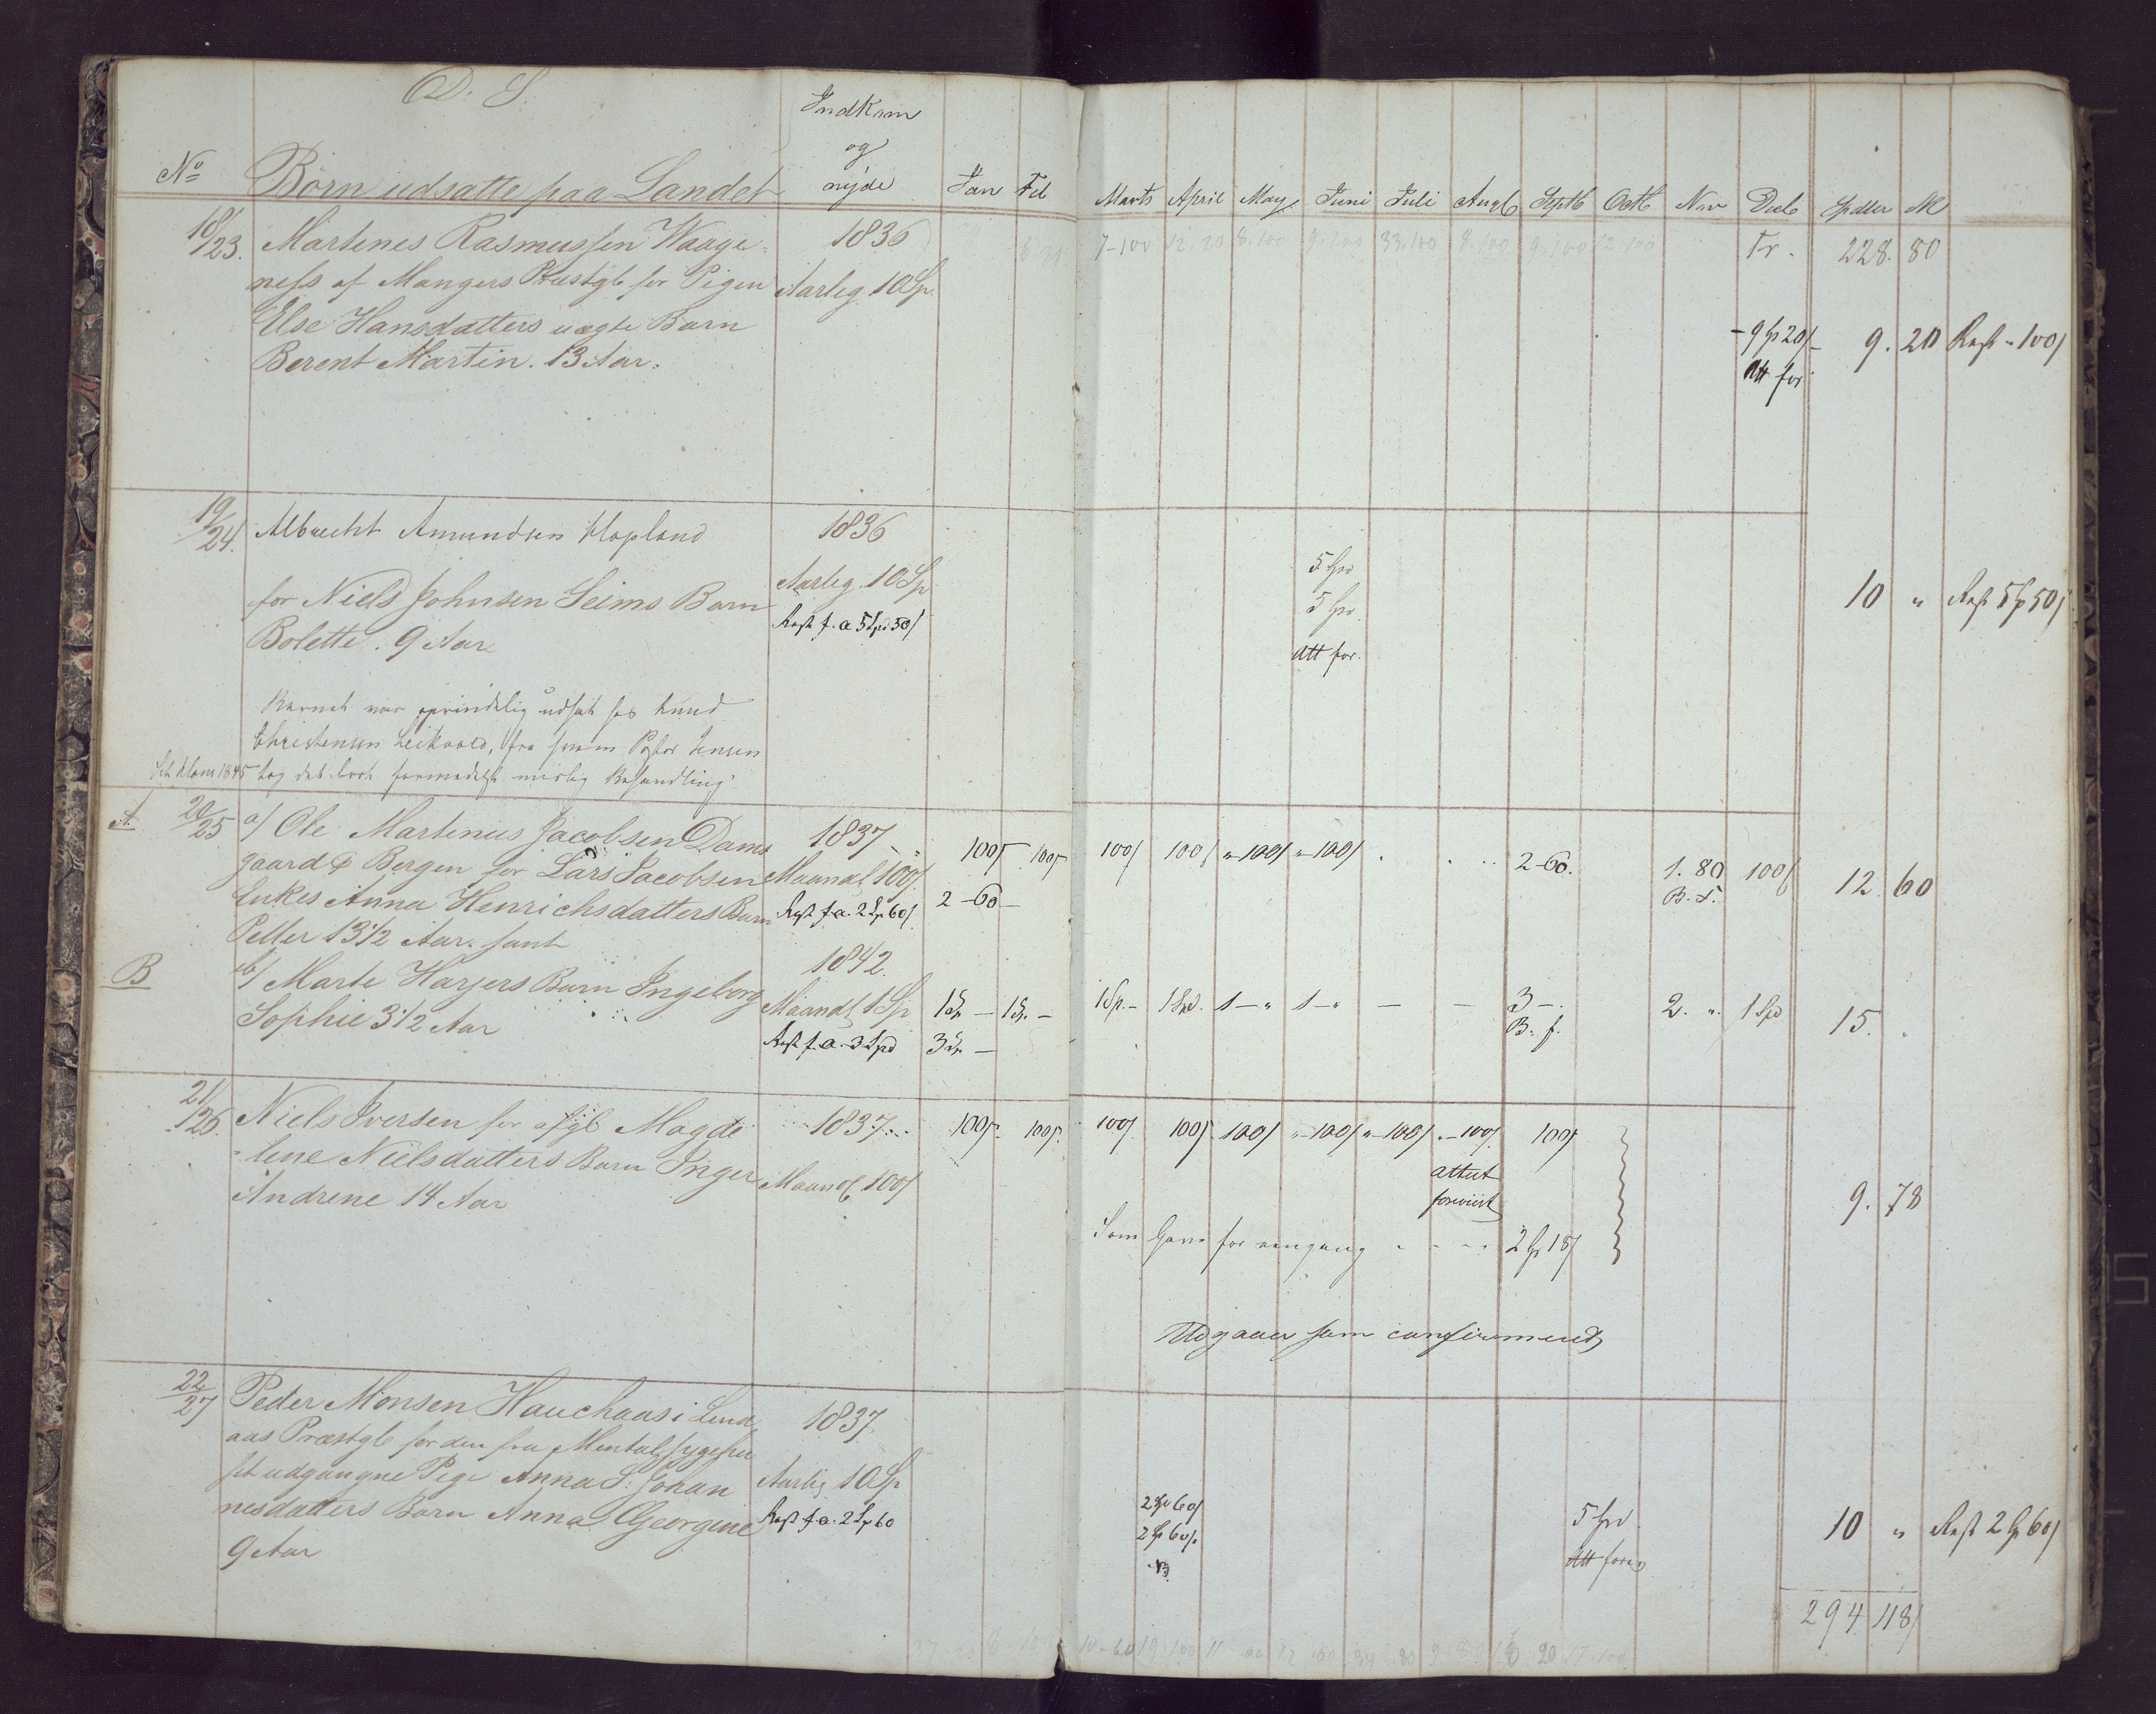 D. S.
Indkom
og
nyde
No Börn udsatte paa Landet Jan Feb Marts April May Juni Juli Augb Septb Octb Nov Decb Spdlr
18/23. Martines Rasmussen Waage- 1836 7-100 12.20 8.100 9.100 33.100 8.100 9.100 12.100 Tr. 228. 80
ness af Mangers Præstgb for Pigen Aarlig 10 Sp.
Else Hansdatters uægte Barn - 9 Sp 20 / 9. 20 Rest " 100/
Berent Martin. 13 Aar. Att for
19/24. Albrecht Amundsen Hopland 1836 5 Spd
for Niels Johnsen Seims Barn Aarlig 10 Sp 5 Spd. 10 " Rest 5 Sp 50/
Bolette. 9 Aar Rest f. a 5 Spd 50/ Att for.
Barnet var oprindelig udsat hos Knud
Christensen, fra hvem Pastor Jensen
1845 tog det bort formedelst mislig Behandling.
A 20/25. a/ Ole Martinus Jacobsen Dams 1837 100/ 100/ 100/ 100/ "-100/ "-100/ 2-60. 1. 80 100/ 12. 60
gaard Bergen for Lars Jacobsen Maandl 100/. B. f.
Enkes Anna Henrichsdatters Barn Rest f. a. 2 Sp 60/. 2-60-
Petter 13 1/2 Aar. samt
B b/ Marte Harjers Barn Ingeborg 1842. 1 Sp. - 1 Spd. 1-" 1-" - - 3-. 2. ". 1 Spd 15. "
Sophie 3 1/2 Aar Maandl 1 Sp 1 Sp - 1 Sp. - B. f.
Rest f. a. 3 Spd 3 Sp -
21/26. Niels Iversen for afg Magde 1837. 100/. 100/. 100/. 100/. 100/ "-100/ "-100/ "-100/. 100/
lene Nielsdatters Barn Inger Maandl 100/ attest
Andrene 14 Aar foreviist 9. 78
Som Gave for eengang - - - 2 Sp 18/
Udgaaer som confirmeret
22/27 Peder Monsen Hauchaas i Lind 1837.
aas Præstgb for den fra Mentalsygehu
set udgangne Pige Anna S. Johan Aarlig 10 Sp
nesdatters Barn Anna Georgine Rest f. a. 2 Sp 60 2 Sp 60/ 5 Spd 10 " Rest 2 Sp 60/
9 Aar 2 Sp 60/. Att forev
294 118/